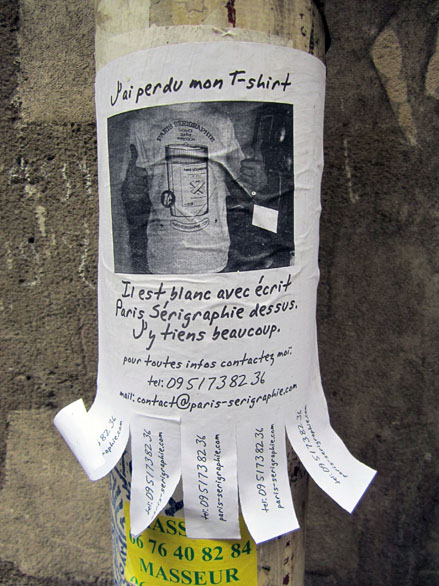 J'ai perdu mon T-shirt
PARIS SÉRIGRAPHIE
Il est blanc avec écrit
Paris Sérigraphie dessus.
J'y tiens beaucoup.
pour toutes infos contactez moi:
tel: 0951738236
mail: contact@paris-serigraphie.com
82 36
raphie.com
tel: 0951738236
paris-serigraphie.com
tel: 0951738236
paris-serigraphie.com
tel: 0951738236
paris-serigraphie.com
tel: 0951738236
paris-serigraphie.com
ASS
06 76 40 82 84
MASSEUR